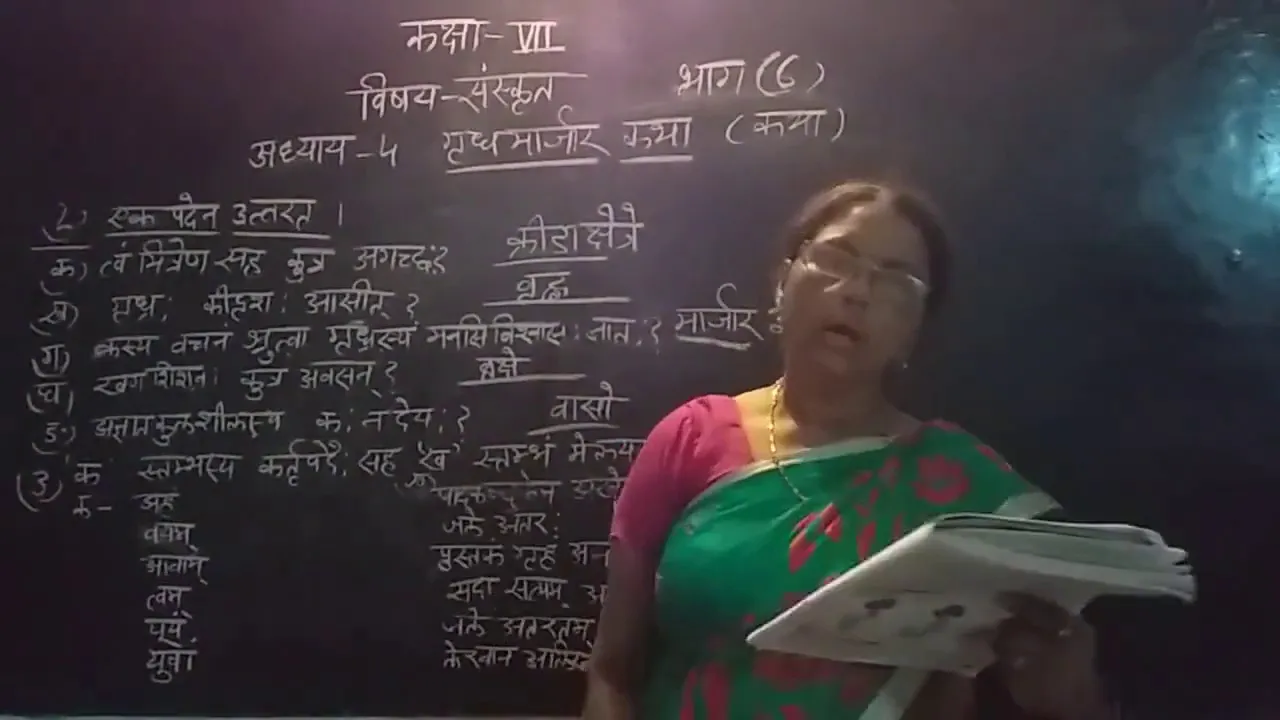 कक्षा - VII
विषय - संस्कृत भाग (6)
अध्याय - 4 गृध्रमार्जार कथा (कथा)
(2) एक पदेन उत्तरत ।
(क) त्वं मित्रेण सह कुत्र अगच्छः? क्रीडाक्षेत्रे
(ख) गृध्रः कीदृशः आसीत् ?
(ग) कस्य वचनं श्रुत्वा गृध्रस्य मनसि विश्वासः जातः? मार्जार
(घ) खगशिशवः कुत्र अवसन् ? वृक्षे
(ङ) अज्ञातकुलशीलस्य कः न देयः? वासो
(3) क स्तम्भस्य कर्तृपदैः सह 'ख' स्तम्भं
क - अहं
वयम् जले अतरः
आवाम् पुस्तक गृहं
त्वम् सदा सत्यम्
यूयं जले अतरतम्
युवां लेखान्